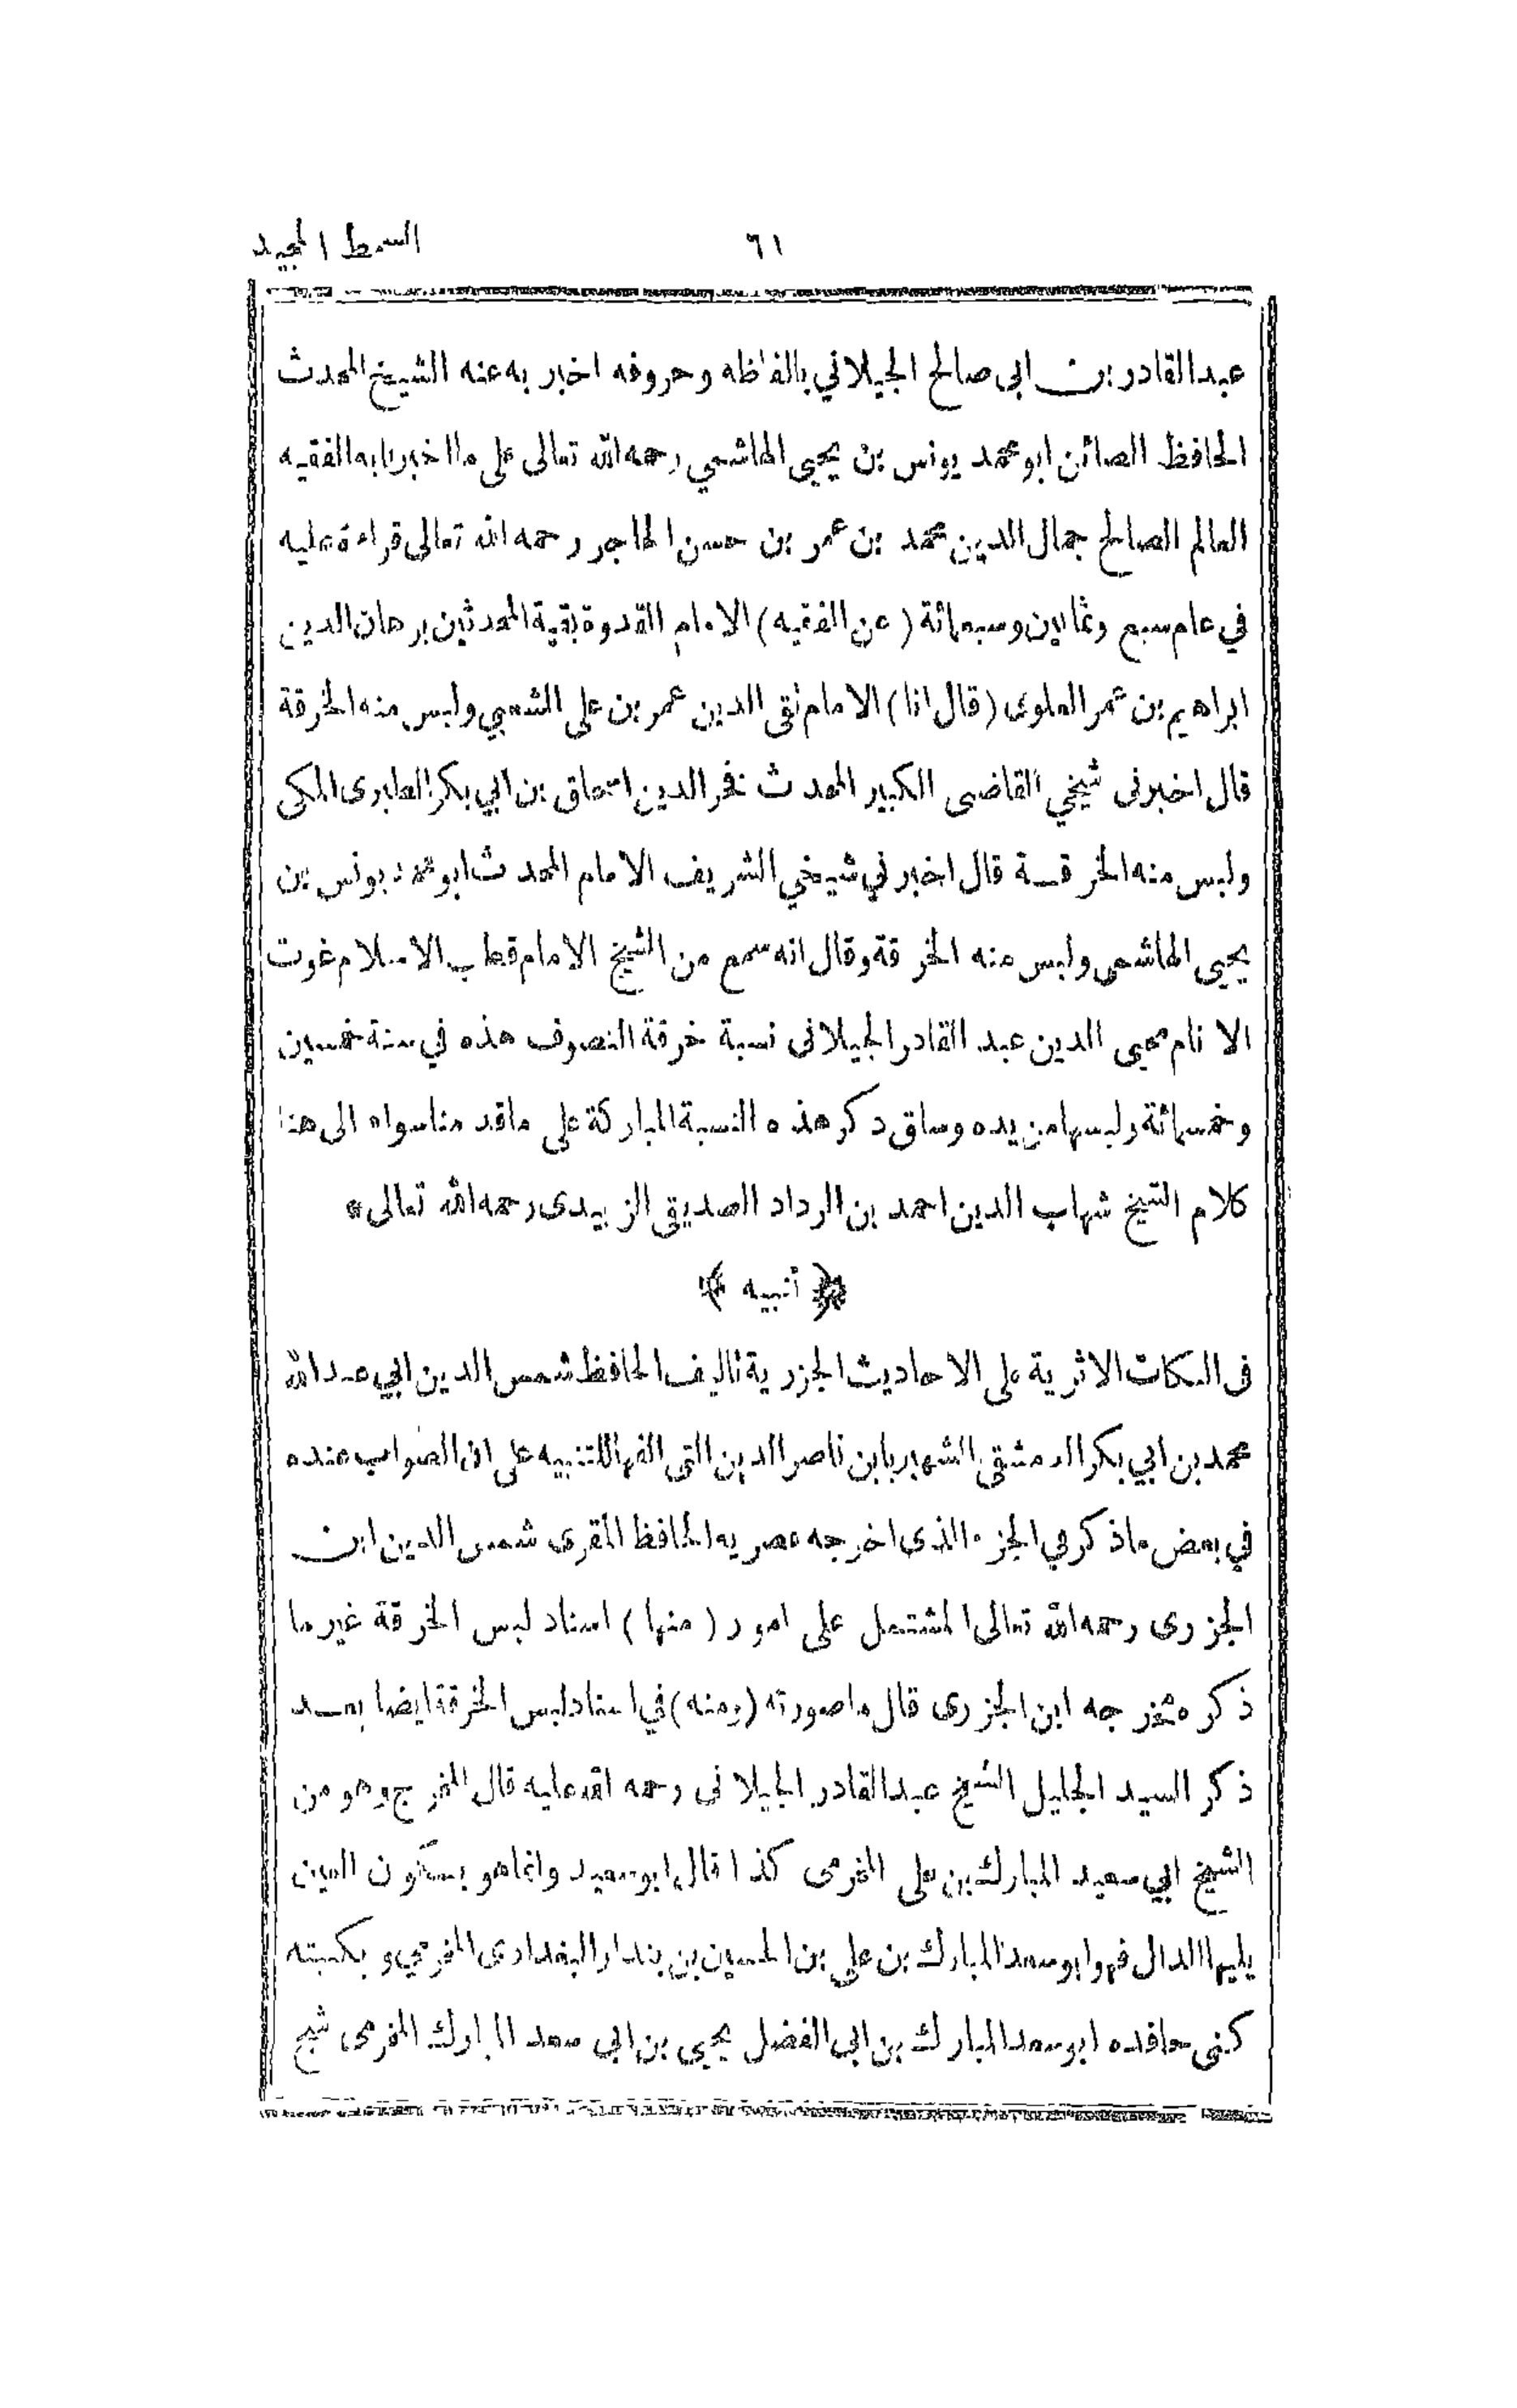 السمط المجيد
٦١
عبدالقادر بن ابى صالح الجيلاني بالفاظه وحروفه اخبر به عنه الشيخ المحدث
الحافظ الصائن ابو محمد يونس بن يحيى الهاشمي رحمه الله تعالى على ما اخبرنا به الفقيه
العالم الصالح جمال الدين محمد بن عمر بن حسن الهاجر رحمه الله تعالى قراءة عليه
في عام سبع وثمانين وسبعمائة (عن الفقيه) الامام القدوة بقية المحدثين برهان الدين
ابراهيم بن عمر العلوى (قال انا) الامام تقى الدين عمر بن على الشعبي ولبس منه الخرقة
قال اخبرنى شيخي القاضى الكبير المحدث فخر الدين اسحاق بن ابي بكر الطبرى المكى
ولبس منه الخرقة قال اخبرني شيخي الشريف الامام المحدث ابو محمد يونس بن
يحيى الهاشمى ولبس منه الخرقة وقال انه سمع من الشيخ الامام قطب الاسلام غوث
الانام محيى الدين عبد القادر الجيلانى نسبة خرقة التصوف هذه في سنة خمسين
وخمسمائة ولبسها من يده وساق ذكر هذه النسبة المباركة على ماقدمناسواه الى هنا
كلام الشيخ شهاب الدين احمد بن الرداد الصديقي الزبيدى رحمه الله تعالى*
﴿ تنبيه ﴾
فى النكات الاثرية على الاحاديث الجزرية تاليف الحافظ شمس الدين ابي عبدالله
محمد بن ابي بكر الدمشقي الشهير بابن ناصر الدين التى الفها للتنبيه على ان الصواب عنده
في بعض ماذكر في الجزء الذى اخرجه عصريه الحافظ المقرى شمس الدين ابن
الجزرى رحمه الله تعالى المشتمل على امور (منها) اسناد لبس الخرقة غير ما
ذكره مخرجه ابن الجزرى قال ماصورته (ومنه) في اسناد لبس الخرقة ايضا بعد
ذكر السيد الجليل الشيخ عبدالقادر الجيلانى رحمة الله عليه قال المخرج وهو من
الشيخ ابي سعيد المبارك بن على المخرمى كذا قال ابو سعيد وانماهو بسكون العين
يليها الدال فهو ابو سعد المبارك بن علي بن الحسين بن بندار البغدادى المخرمي وبكنيته
كنى حافده ابو سعد المبارك بن ابى الفضل يحيى بن ابى سعد المبارك المخرمى شيخ